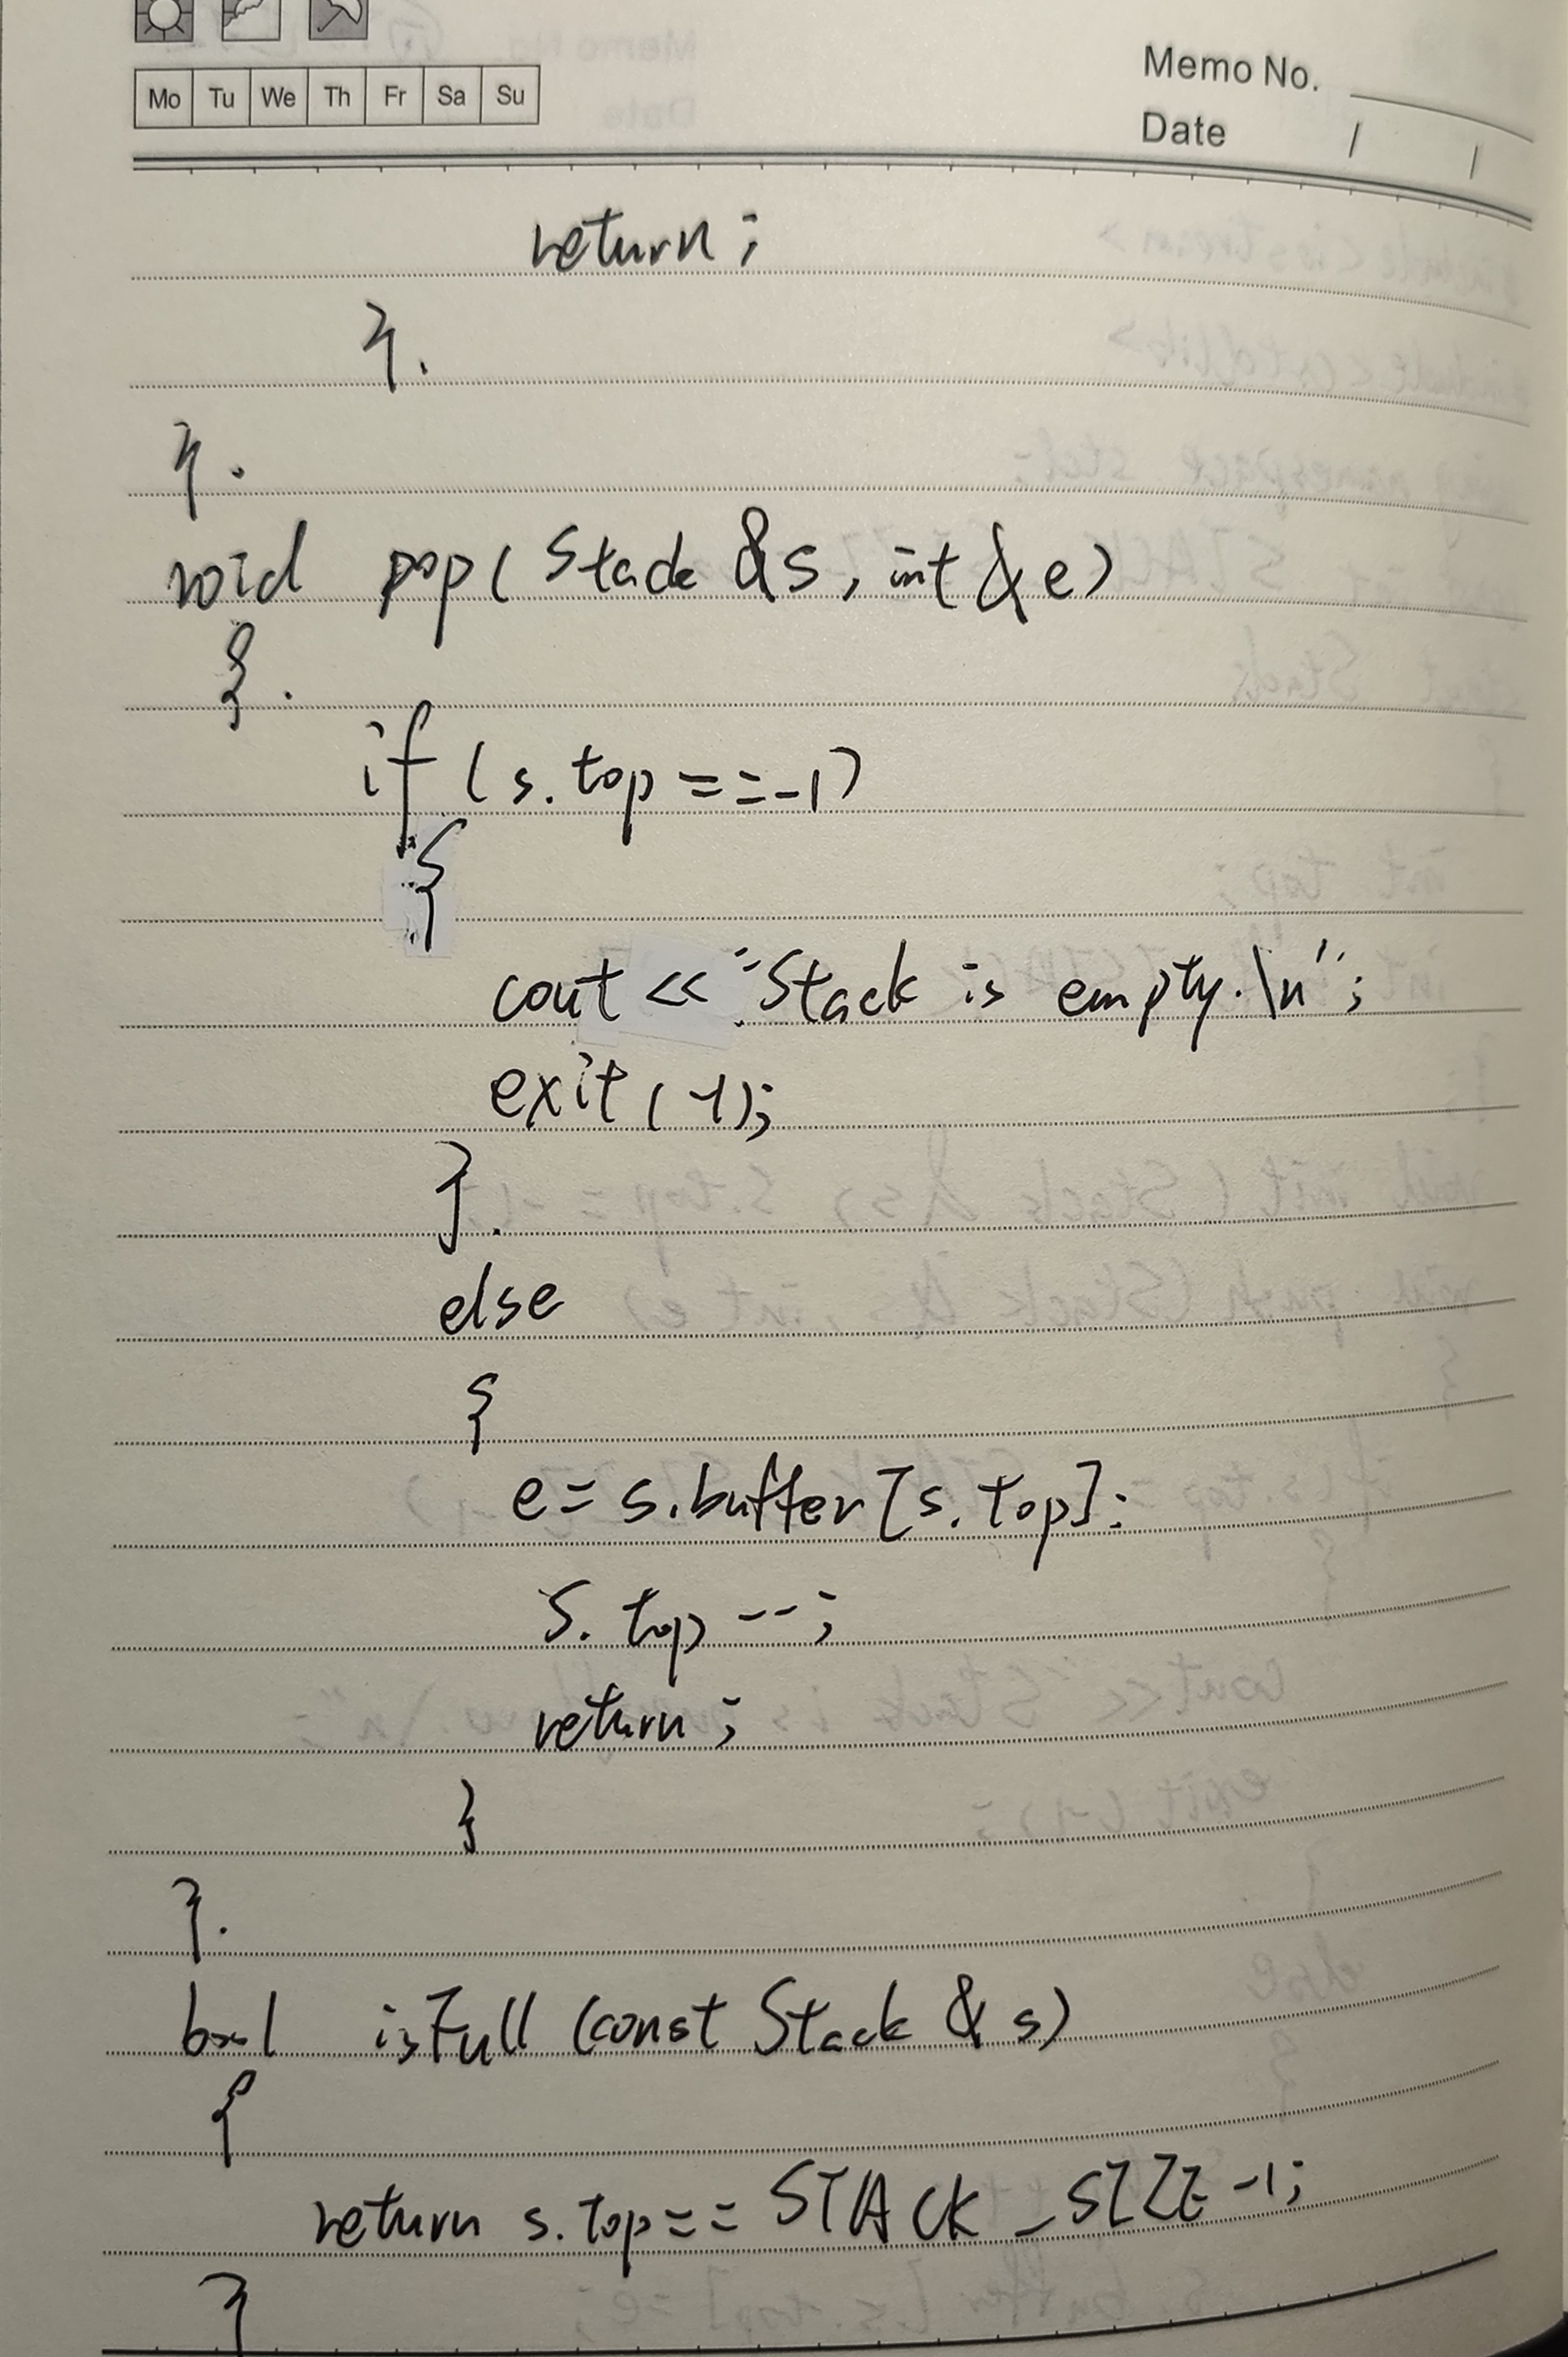 Mo Tu We Th Fr Sa Su
Memo No.
Date / /
return;
}.
}.
void pop( Stack &s, int &e)
{.
if (s.top==-1)
{
cout << "Stack is empty.\n";
exit(-1);
}.
else
{
e= s.buffer[s.top];
s.top--;
return;
}
}.
bool isFull (const Stack & s)
{
return s.top== STACK_SIZE-1;
}